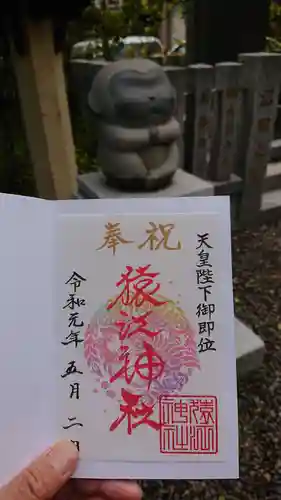 奉祝
天皇陛下御即位
猿江神社
令和元年五月二日
猿江
神社